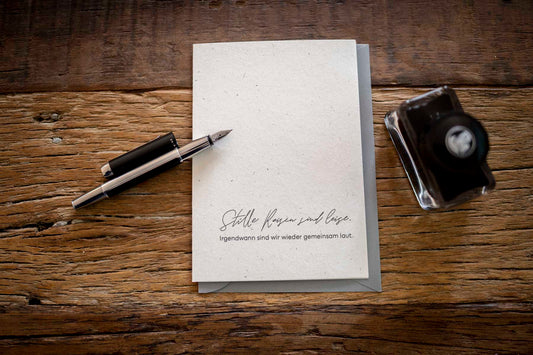 Stille Rasen sind leise.
Irgendwann sind wir wieder gemeinsam laut.